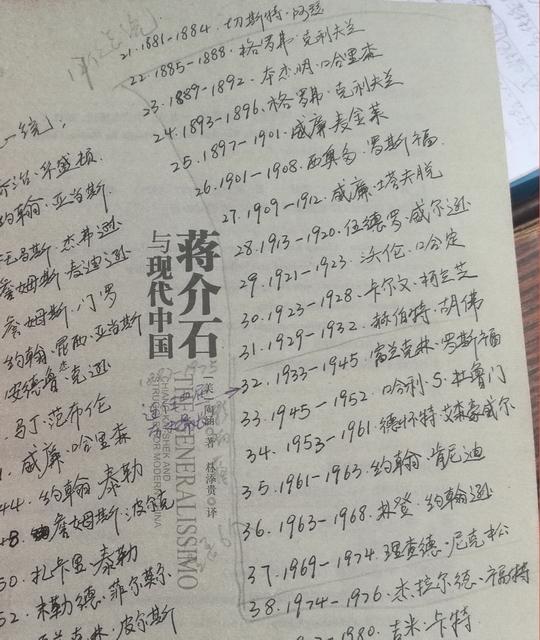 21. 1881-1884. 切斯特·阿瑟
22. 1885-1888. 格罗弗·克利夫兰
23. 1889-1892. 本杰明·哈里森
24. 1893-1896. 格罗弗·克利夫兰
25. 1897-1901. 威廉麦金莱
26. 1901-1908. 西奥多·罗斯福
27. 1909-1912. 威廉·塔夫脱
28. 1913-1920. 伍德罗·威尔逊
29. 1921-1923. 沃伦·哈定
30. 1923-1928. 卡尔文·柯立芝
31. 1929-1932. 赫伯特·胡佛
32. 1933-1945. 富兰克林·罗斯福
33. 1945-1952. 哈利·S·杜鲁门
34. 1953-1961. 德怀特艾森豪威尔
35. 1961-1963. 约翰·肯尼迪
36. 1963-1968. 林登·约翰逊
37. 1969-1974. 理查德·尼克松
38. 1974-1976. 杰拉尔德·福特
1980. 吉米·卡特
统:
治·华盛顿
约翰·亚当斯
马斯·杰弗逊
詹姆斯·麦迪逊
詹姆斯·门罗
约翰·昆西·亚当斯
安德鲁·杰克逊
马丁·范布伦
威廉·哈里森
44. 约翰·泰勒
48. 詹姆斯·波尔克
50. 扎卡里·泰勒
52. 米勒德·菲尔莫尔
兰克林·皮尔斯
蒋介石
与现代中国
THE GENERALISSIMO
CHIANG KAI-SHEK AND
THE STRUGGLE FOR MODERN CHINA
美
陶涵
著
林添贵
译